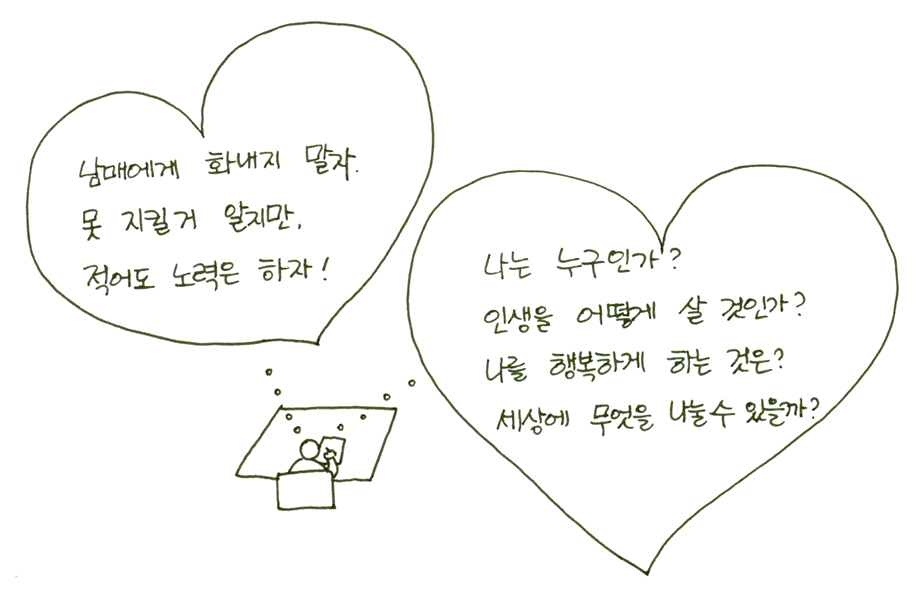 남매에게 화내지 말자.
못 지킬거 알지만,
적어도 노력은 하자!
나는 누구인가?
인생을 어떻게 살 것인가?
나를 행복하게 하는 것은?
세상에 무엇을 나눌 수 있을까?